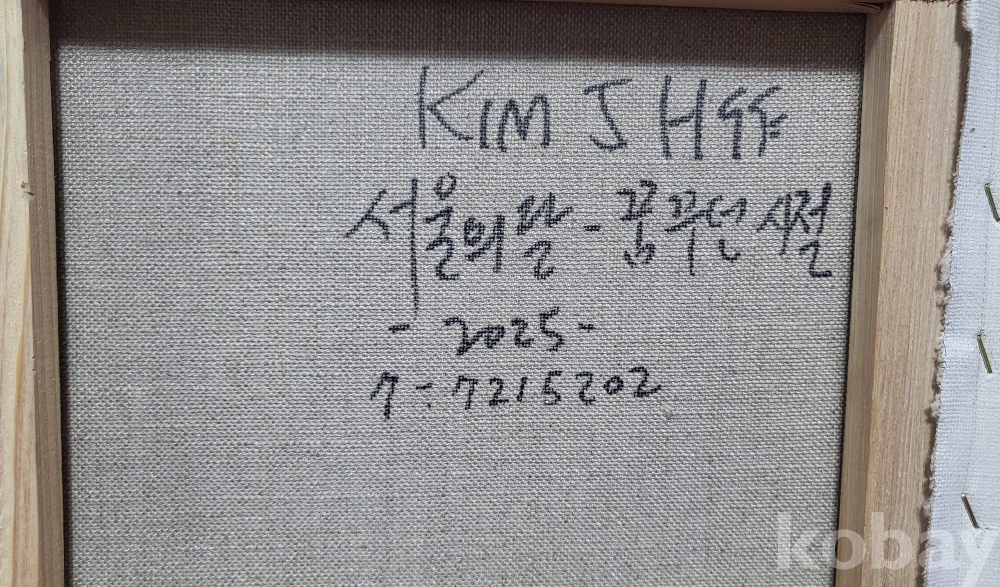 KIM J H
서울의달 - 꿈꾸던 시절
- 2025-
7-7215202
kobay